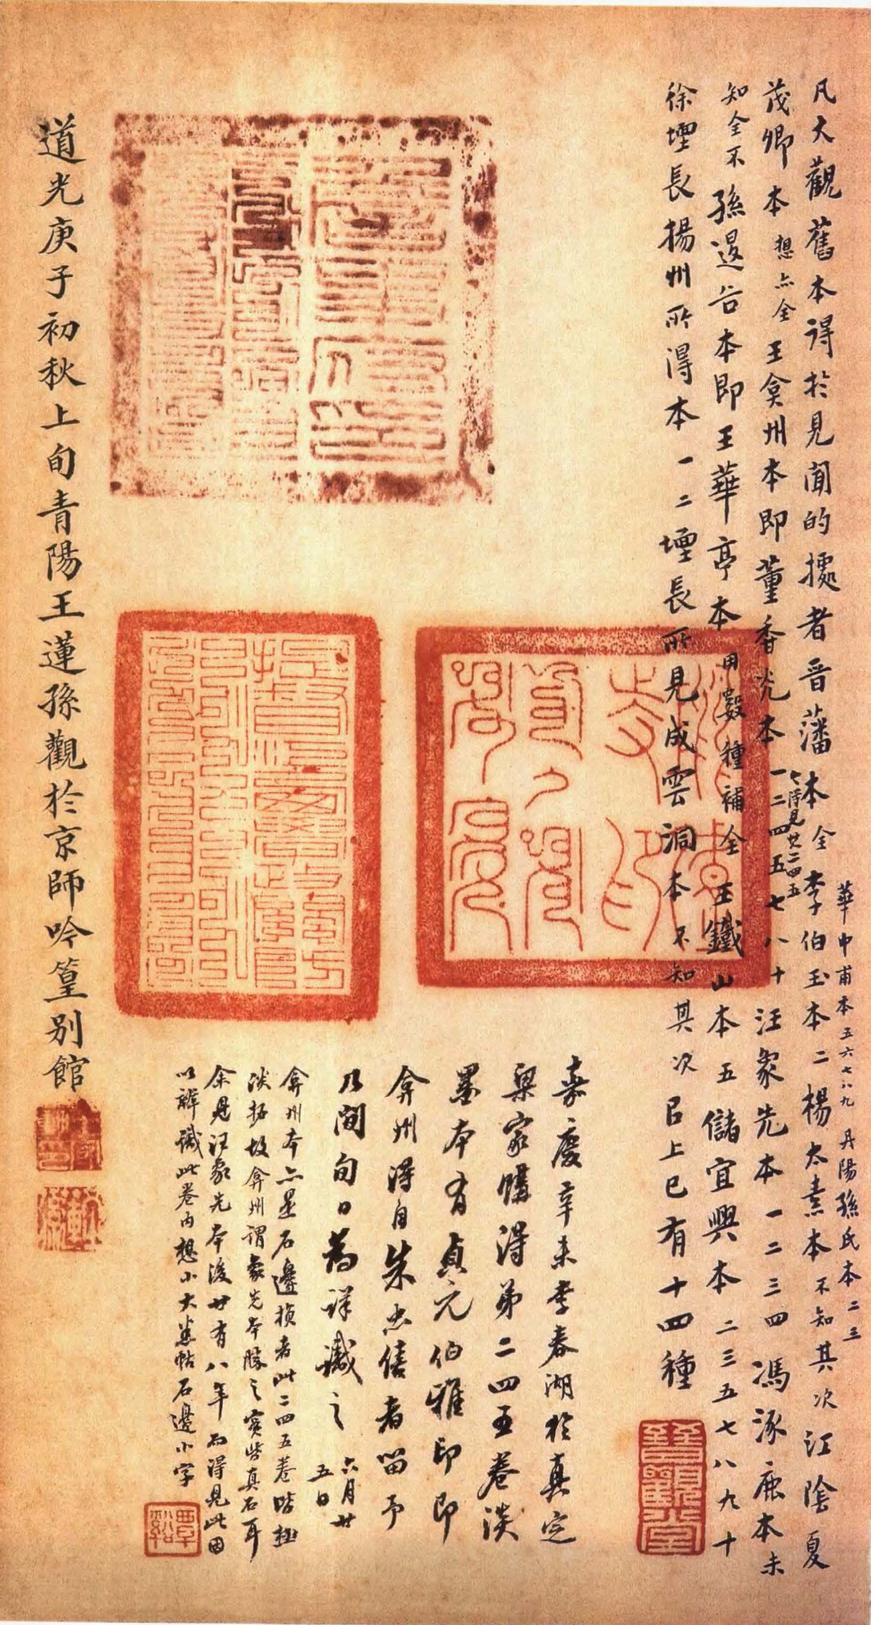 華中甫本五六七八九 丹陽孫氏本二三
凡大觀舊本得於見聞的據者晉藩本全李伯玉本二楊太素本不知其次江陰夏
茂卿本想亦全王弇州本即董香光本一二四五七八十汪象先本一二三四馮涿鹿本未
七得見廿二四五
知全不孫退谷本即王華亭本用數種補全王鐵山本五儲宜興本二三五七八九十
徐壇長揚州所得本一二壇長所見成雲洞本不知其次已上已有十四種
嘉慶辛未李春湖於真定
梁家購得第二四五卷淡
墨本有貞元伯雅印即
弇州得自朱忠僖者留予
几間旬日為詳識之六月廿
五日
弇州本亦是石邊損者此二四五卷皆極
淡拓故弇州謂象先本勝之實皆真石耳
余見汪象先本後廿有八年而得見此因
以詳識此卷內想小大卷帖石邊小字
覃谿
道光庚子初秋上旬青陽王蓮孫觀於京師吟篁別館